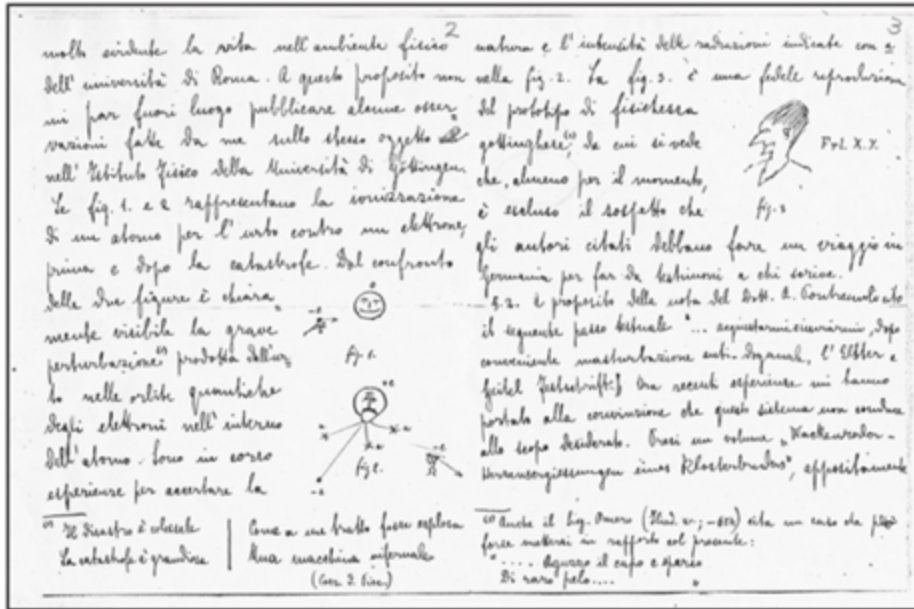 2
molto evidente la vita nell'ambiente fisico
dell'università di Roma. A questo proposito non
mi par fuori luogo pubblicare alcune osser
vazioni fatte da me sullo stesso oggetto
nell'Istituto Fisico della Università di Göttingen.
Le fig. 1. e 2 rappresentano la ionizzazione
di un atomo per l'urto contro un elettrone,
prima e dopo la catastrofe. Dal confronto
delle due figure è chiara
mente visibile la grave
perturbazione prodotta dall'ur
to nelle orbite quantiche
degli elettroni nell'interno
dell'atomo. Sono in corso
esperienze per accertare la
fig 1.
fig 2.
Il disastro è colossale
La catastrofe è grandiosa
Come a un tratto fosse esplosa
Una macchina infernale
3
natura e l'intensità delle radiazioni indicate con
nella fig. 2. La fig. 3. è una fedele reproduzione
del prototipo di fisichessa
gottinghese, da cui si vede
che, almeno per il momento,
è escluso il sospetto che
gli autori citati debbano fare un viaggio in
Germania per far da testimoni a chi scrive.
Frl. X. Y.
fig. 3
§.2. A proposito della nota del Dott. A.
il seguente passo testuale "...
conveniente masturbazione l'Elster e
Geitel Festschrift. Ora recenti esperienze mi hanno
portato alla convinzione che questo sistema non conduce
allo scopo desiderato. Presi un volume
eines Klosterbruders", appositamente
Anche il Sig. Omero cita un caso da
forse mettersi in rapporto col presente:
"..... Aguzzo il capo e sparso
Di raro pelo....